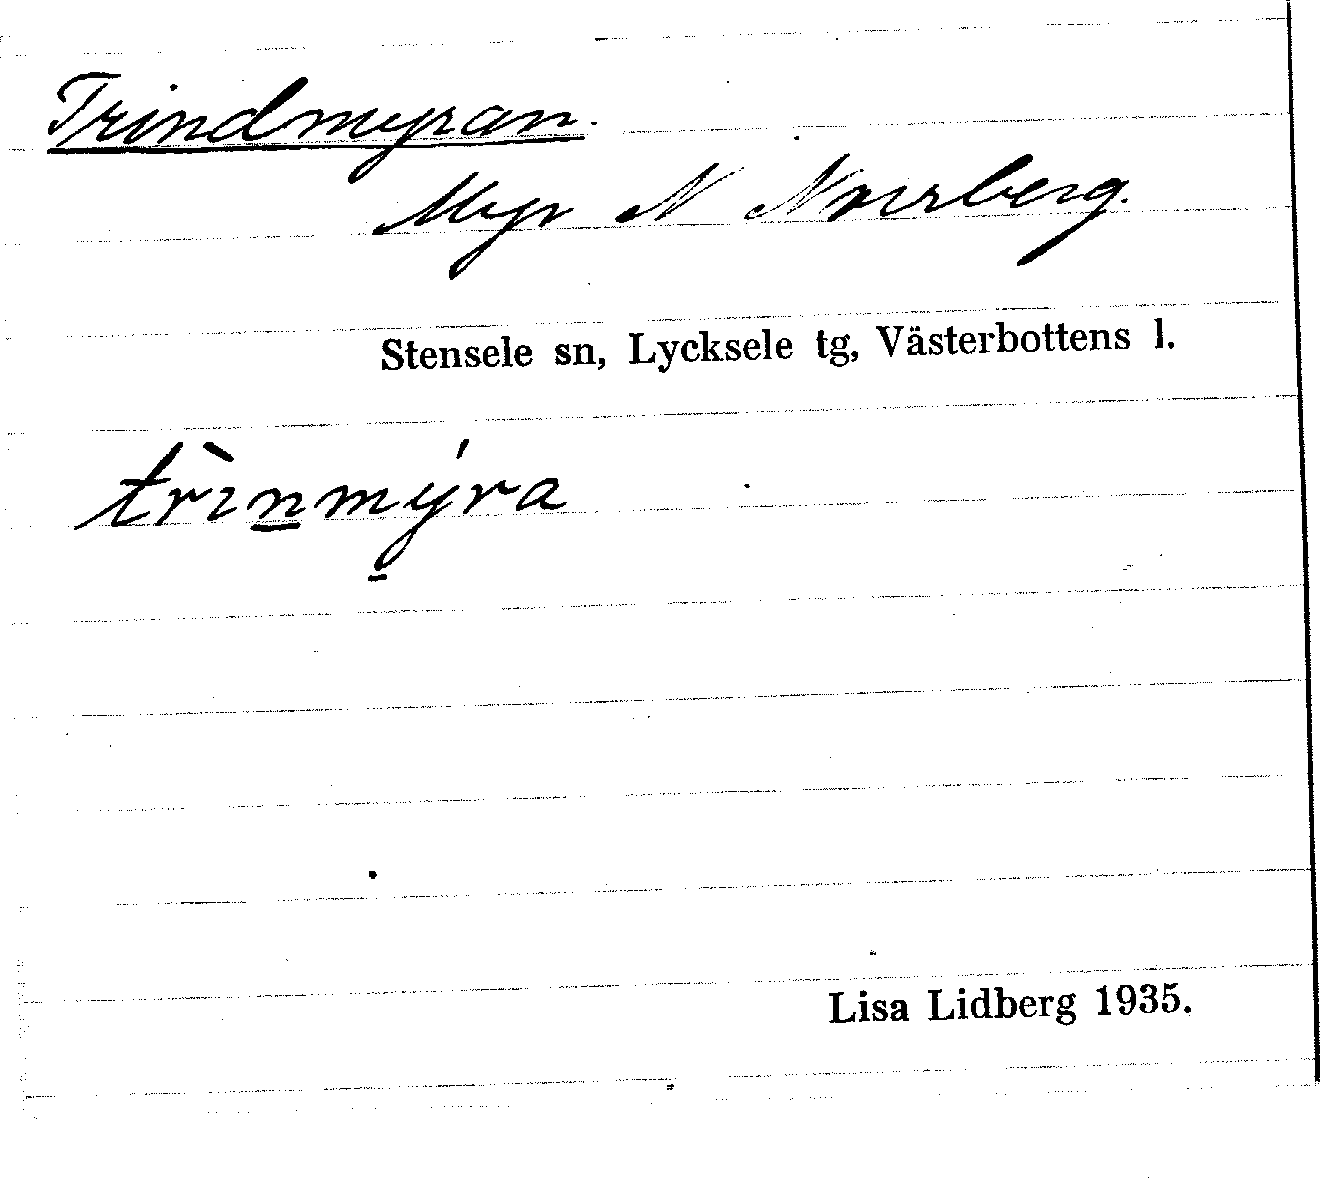 Trindmyran.
Myr N Norrberg.
Stensele sn, Lycksele tg, Västerbottens l.
trìnmýra
Lisa Lidberg 1935.